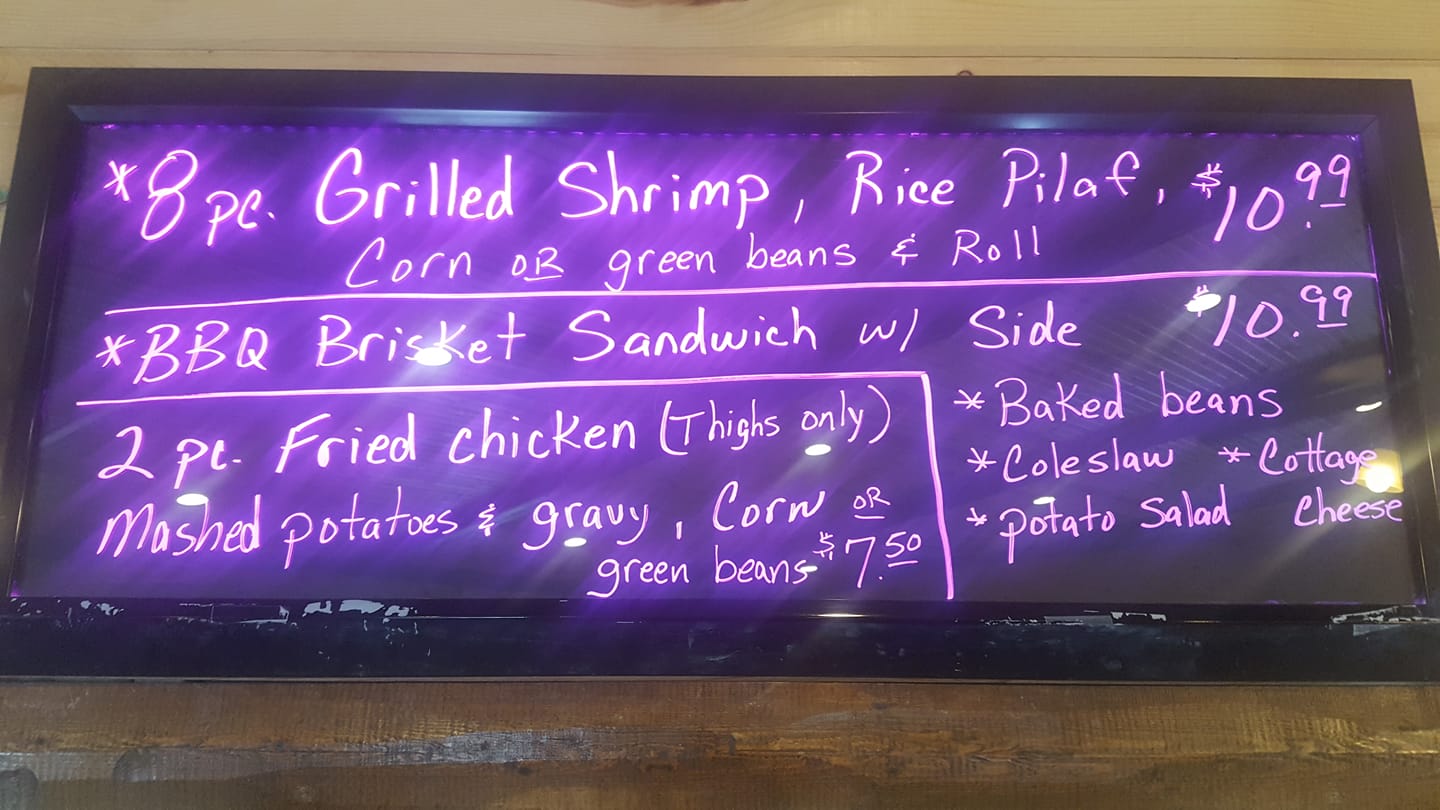 *8 pc. Grilled Shrimp, Rice Pilaf, $10.99
Corn OR green beans & Roll
*BBQ Brisket Sandwich w/ Side $10.99
* Baked beans
* Coleslaw * Cottage
* potato Salad Cheese
2 pc. Fried chicken (Thighs only)
Mashed potatoes & gravy, Corn OR
green beans $7.50